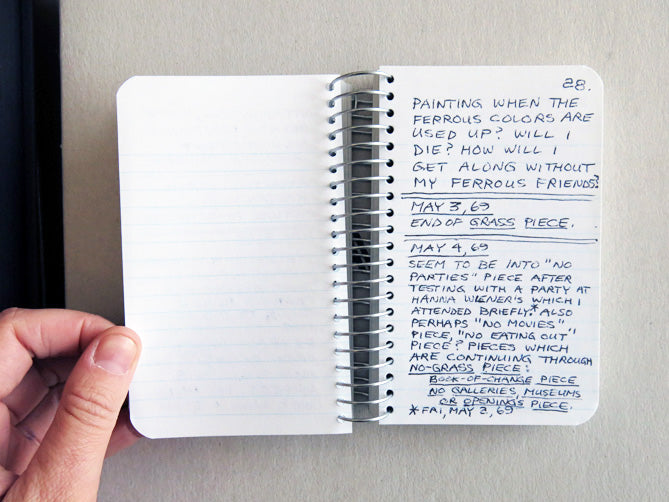 28.
PAINTING WHEN THE
FERROUS COLORS ARE
USED UP? WILL I
DIE? HOW WILL I
GET ALONG WITHOUT
MY FERROUS FRIENDS?
MAY 3, 69
END OF GRASS PIECE.
MAY 4, 69
SEEM TO BE INTO "NO
PARTIES" PIECE AFTER
TESTING WITH A PARTY AT
HANNA WIENER'S WHICH I
ATTENDED BRIEFLY.* ALSO
PERHAPS "NO MOVIES"
PIECE, "NO EATING OUT"
PIECE? PIECES WHICH
ARE CONTINUING THROUGH
NO-GRASS PIECE:
BOOK-OF-CHANGE PIECE
NO GALLERIES, MUSEUMS
OR OPENINGS PIECE.
*FRI, MAY 2, 69